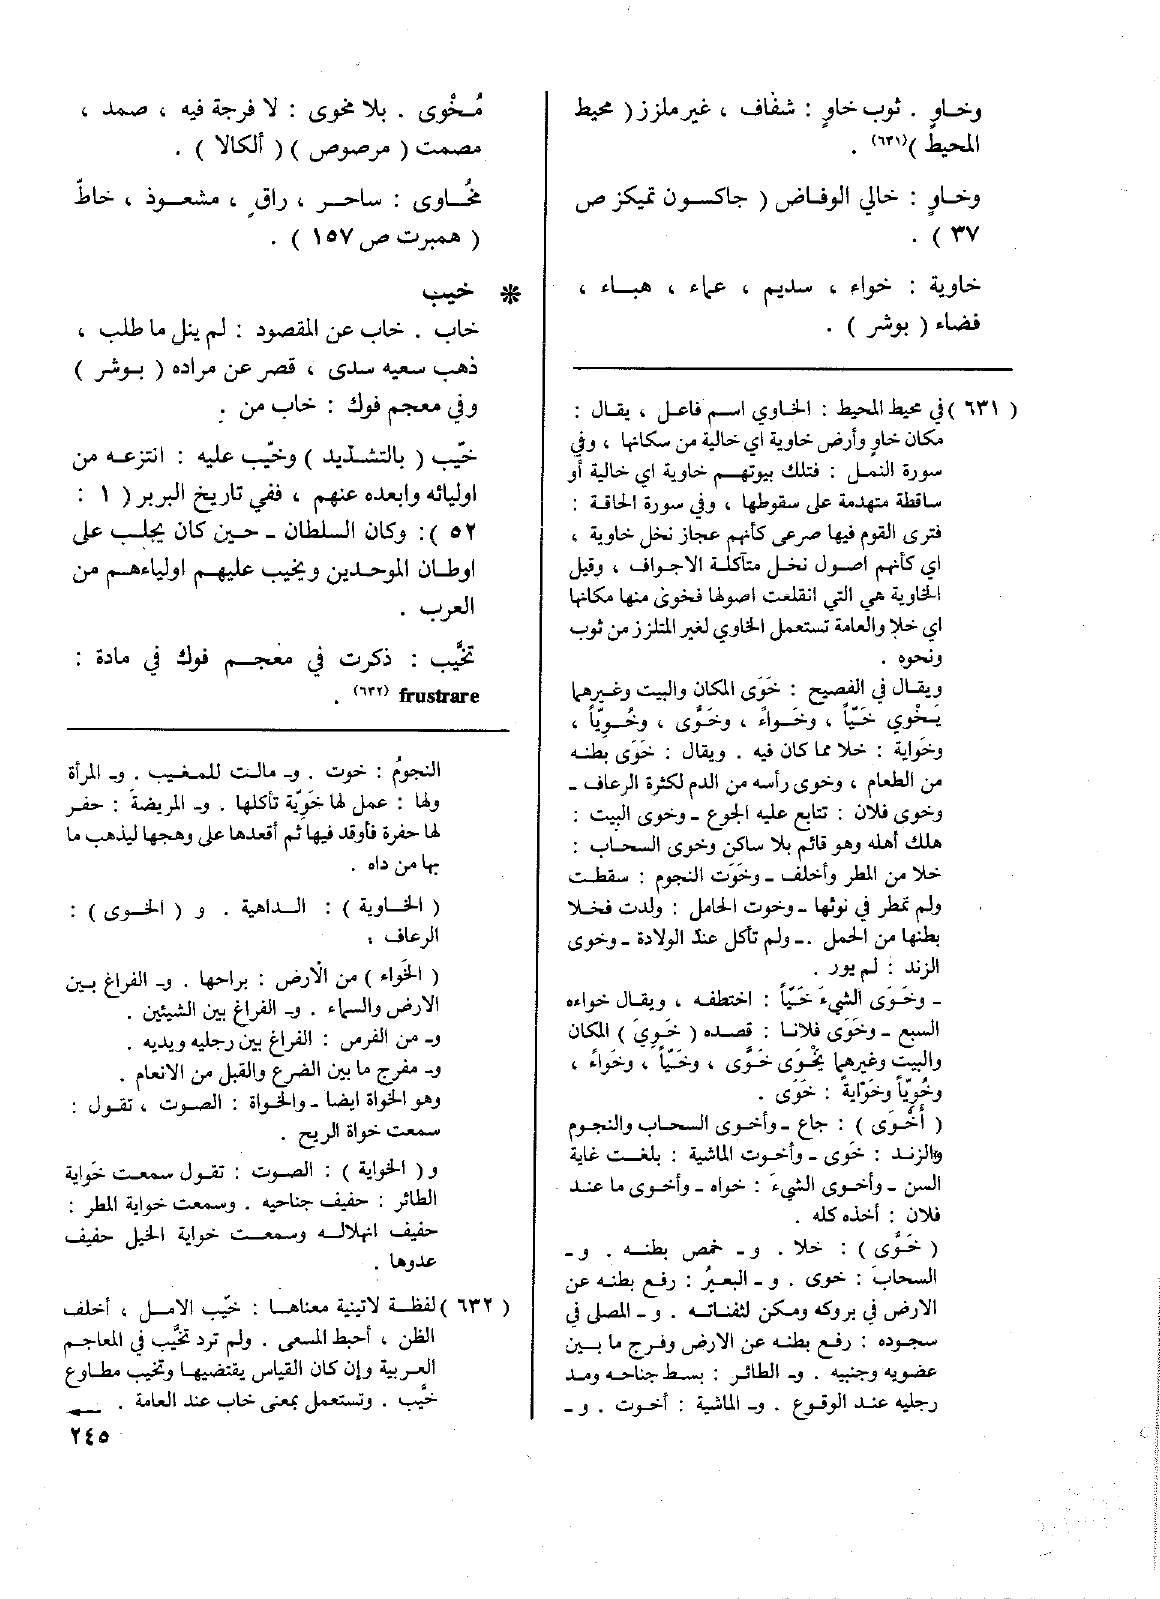 وخاوٍ . ثوب خاوٍ : شفاف ، غير ملزز ( محيط
المحيط )(٦٣١) .
وخاوٍ : خالي الوفاض ( جاكسون تمبكز ص
٣٧ ) .
خاوية : خواء ، سديم ، عماء ، هباء ،
فضاء ( بوشر ) .
( ٦٣١ ) في محيط المحيط : الخاوي اسم فاعل ، يقال :
مكان خاوٍ وأرض خاوية اي خالية من سكانها ، وفي
سورة النمل : فتلك بيوتهم خاوية اي خالية أو
ساقطة متهدمة على سقوطها ، وفي سورة الحاقة :
فترى القوم فيها صرعى كأنهم عجاز نخل خاوية ،
اي كأنهم اصول نخل متآكلة الاجواف ، وقيل
الخاوية هي التي انقلعت اصولها فخوى منها مكانها
اي خلا والعامة تستعمل الخاوي لغير المتلزز من ثوب
ونحوه .
ويقال في الفصيح : خَوَى المكان والبيت وغيرهما
يَخْوي خَيّاً ، وخَواءً ، وخَوًى ، وخُوِيّاً ،
وخَواية : خلا مما كان فيه . ويقال : خَوَى بطنه
من الطعام ، وخوى رأسه من الدم لكثرة الرعاف -
وخوى فلان : تتابع عليه الجوع - وخوى البيت :
هلك أهله وهو قائم بلا ساكن وخوى السحاب :
خلا من المطر وأخلف - وخَوَت النجوم : سقطت
ولم تمطر في نوئها - وخوت الحامل : ولدت فخلا
بطنها من الحمل .- ولم تأكل عند الولادة - وخوى
الزند : لم يور .
- وخَوَى الشيءَ خَيّاً : اختطفه ، ويقال خواءه
السبع - وخَوَى فلانا : قصده ( خَوِيَ ) المكان
والبيت وغيرهما يَخْوَى خَوًى ، وخَيّاً ، وخَواءً ،
وخُوِيّاً وخَوّايةً : خَوَى .
( أَخْوَى ) : جاع - وأخوى السحاب والنجوم
والزند : خَوى - وأخوت الماشية : بلغت غاية
السن - وأخوى الشيءَ : خواه - وأخوى ما عند
فلان : أخذه كله .
( خَوَّى ) : خلا . و- خمص بطنه . و-
السحابَ : خوى . و- البعيرُ : رفع بطنه عن
الارض في بروكه ومكن لثفناته . و- المصلى في
سجوده : رفع بطنه عن الارض وفرج ما بين
عضويه وجنبيه . و- الطائر : بسط جناحه ومد
رجليه عند الوقوع . و- الماشية : أخوت . و-
مُخْوى . بلا مخوى : لا فرجة فيه ، صمد ،
مصمت ( مرصوص ) ( ألكالا ) .
مخُاوى : ساحر ، راقٍ ، مشعوذ ، خاطّ
( همبرت ص ١٥٧ ) .
* خيب
خاب . خاب عن المقصود : لم ينل ما طلب ،
ذهب سعيه سدى ، قصر عن مراده ( بوشر )
وفي معجم فوك : خاب من .
خيّب ( بالتشديد ) وخيّب عليه : انتزعه من
اوليائه وابعده عنهم ، ففي تاريخ البربر ( ١ :
٥٢ ): وكان السلطان - حين كان يجلب على
اوطان الموحدين ويخيب عليهم اولياءهم من
العرب .
تخيَّب : ذكرت في معجم فوك في مادة :
frustrare (٦٣٢) .
النجومُ : خوت . و- مالت للمغيب . و- المرأة
ولها : عمل لها خَوِيّة تأكلها . و- المريضةَ : حفر
لها حفرة فأوقد فيها ثم أقعدها على وهجها ليذهب ما
بها من داه .
( الخاوية ) : الداهية . و ( الخوى ) :
الرعاف ،
( الخَواء ) من الأرض : براحها . و- الفراغ بين
الارض والسماء . و- الفراغ بين الشيئين .
و- من الفرس : الفراغ بين رجليه ويديه .
و- مفرج ما بين الضرع والقبل من الانعام .
وهو الخواة ايضا - والخواة : الصوت ، تقول :
سمعت خواة الريح .
و ( الخواية ) : الصوت : تقول سمعت خَواية
الطائر : حفيف جناحيه . وسمعت خواية المطر :
حفيف انهلاله وسمعت خواية الخيل حفيف
عدوها .
( ٦٣٢ ) لفظة لاتينية معناها : خيّب الامل ، أخلف
الظن ، أحبط المسعى . ولم ترد تخيَّب في المعاجم
العربية وإن كان القياس يقتضيها وتخيب مطاوع
خيَّب . وتستعمل بمعنى خاب عند العامة . ←
٢٤٥